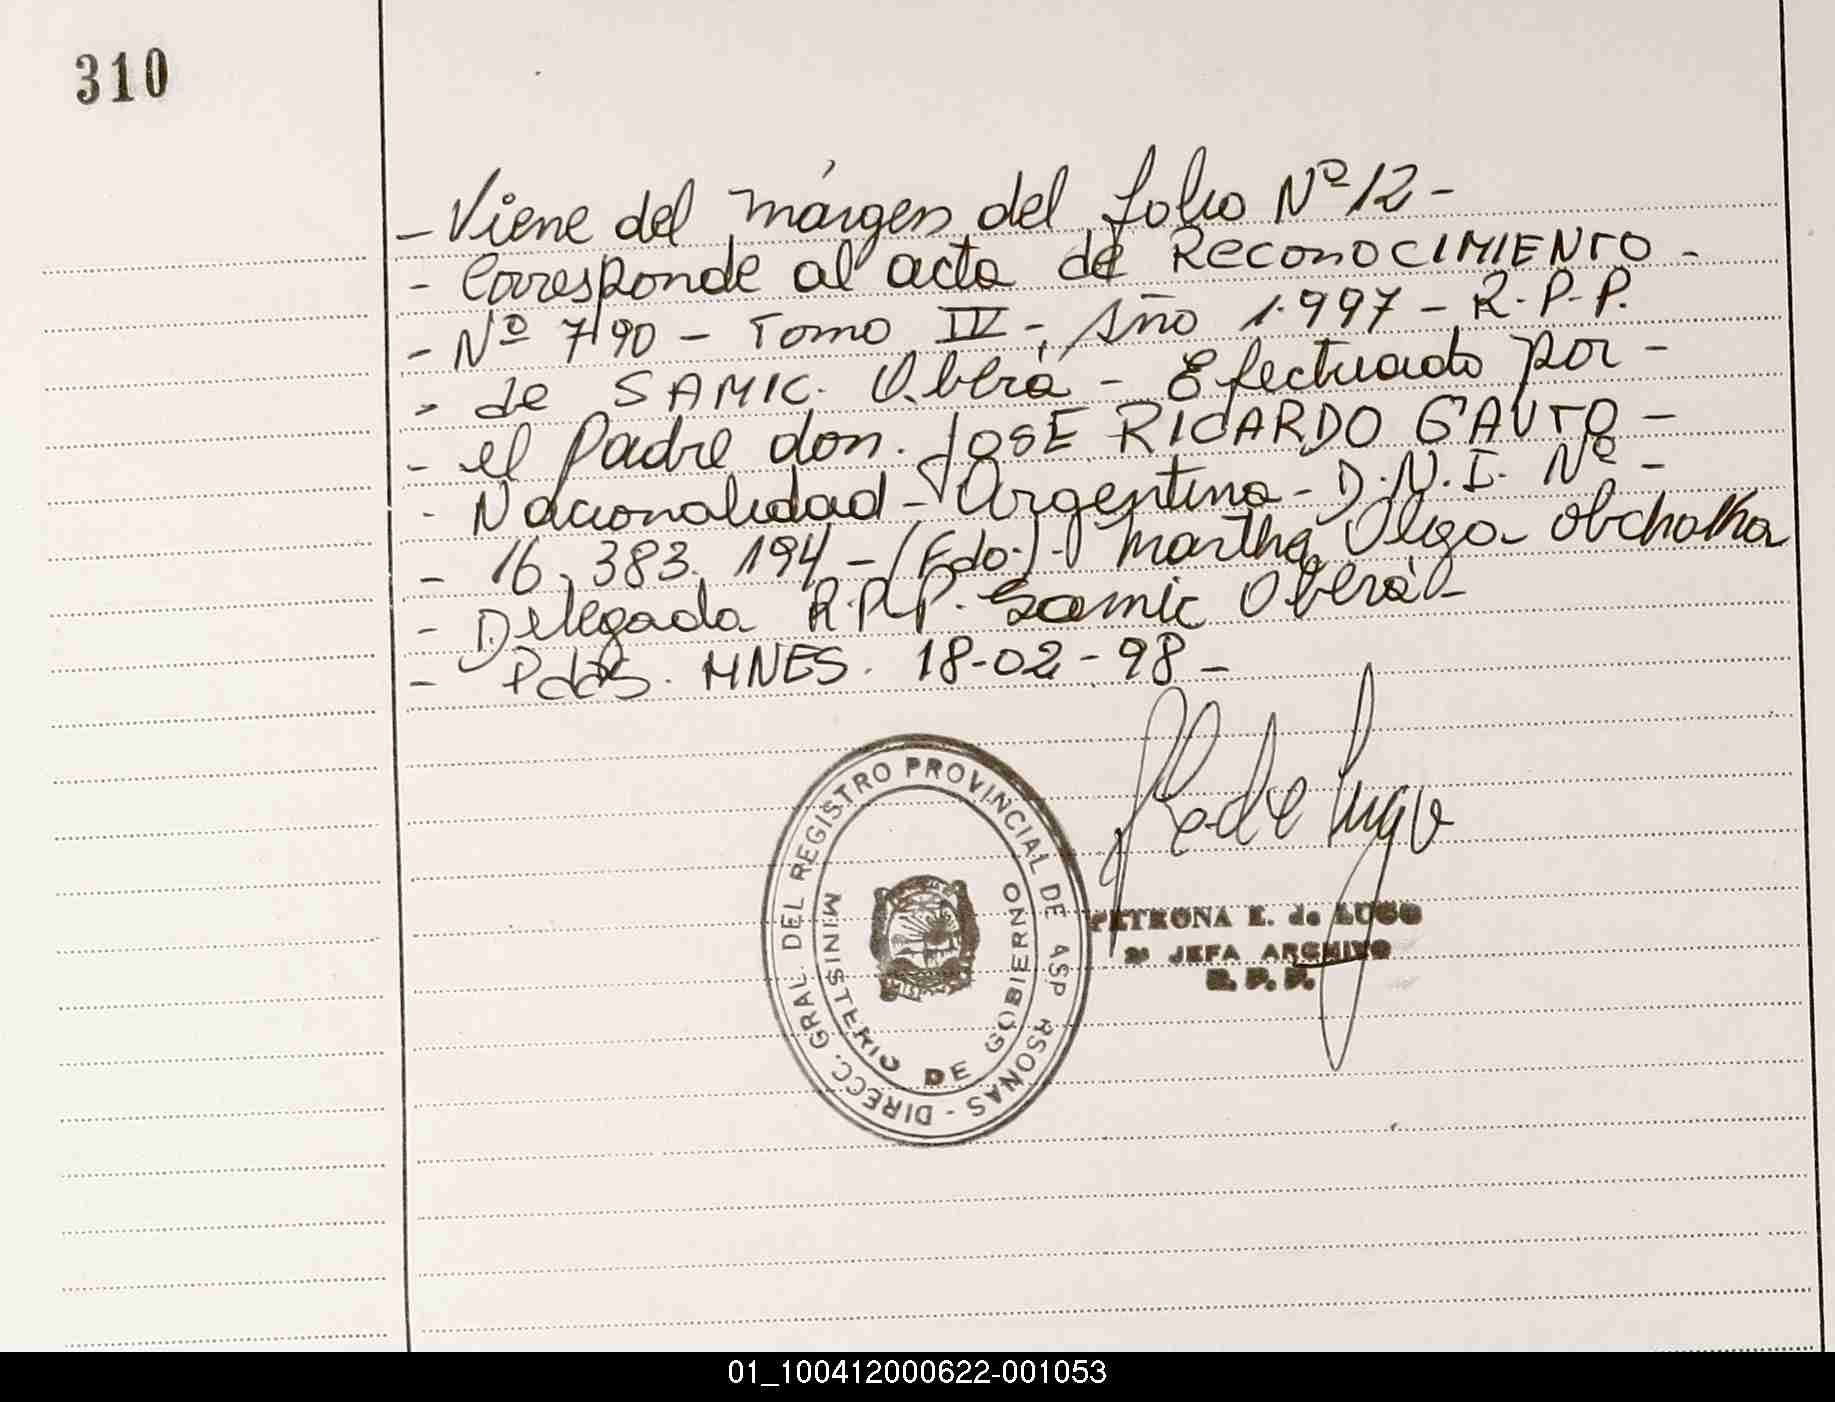 310
- Viene del márgen del folio Nº 12 -
- Corresponde al acta de RECONOCIMIENTO -
- Nº 790 - Tomo IV - Año 1.997 - R.P.P.
- de SAMIC. Oberá - Efectuado por -
- el Padre don. JOSE RICARDO GAUTO -
- Nacionalidad - Argentina - D.N.I. Nº -
- 16.383.194 - (Fdo.) - Martha Olga Obchatka
- Delegada R.P.P. Samic Oberá -
- Pdas. MNES. 18-02-98 -
DIRECC. GRAL DEL REGISTRO PROVINCIAL DE ASP RSONAS -
MINISTERIO DE GOBIERNO
de Lugo
PETRONA E. de LUGO
2ª JEFA ARCHIVO
R.P.P.
01_100412000622-001053